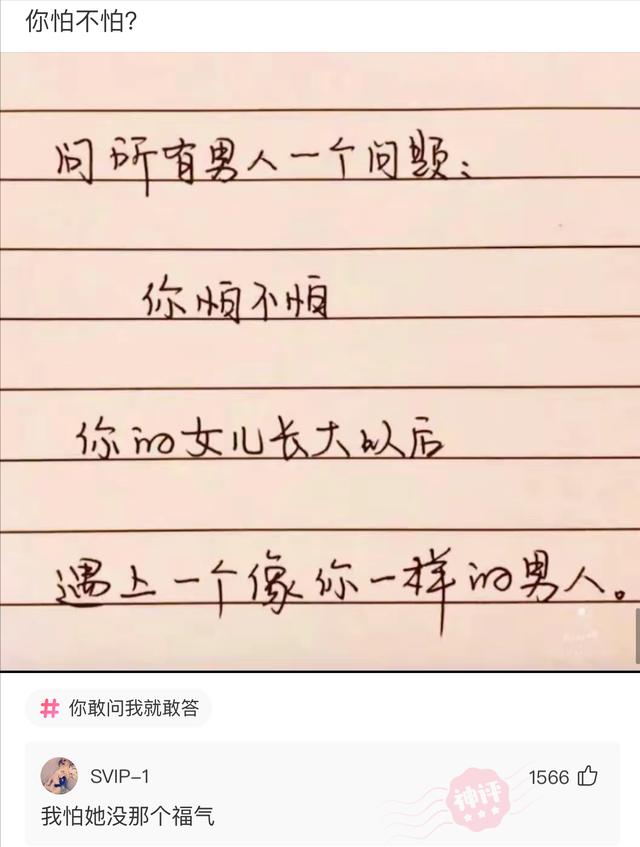 你怕不怕?
问所有男人一个问题：
你怕不怕
你的女儿长大以后
遇上一个像你一样的男人。
# 你敢问我就敢答
SVIP-1
1566
我怕她没那个福气
神评